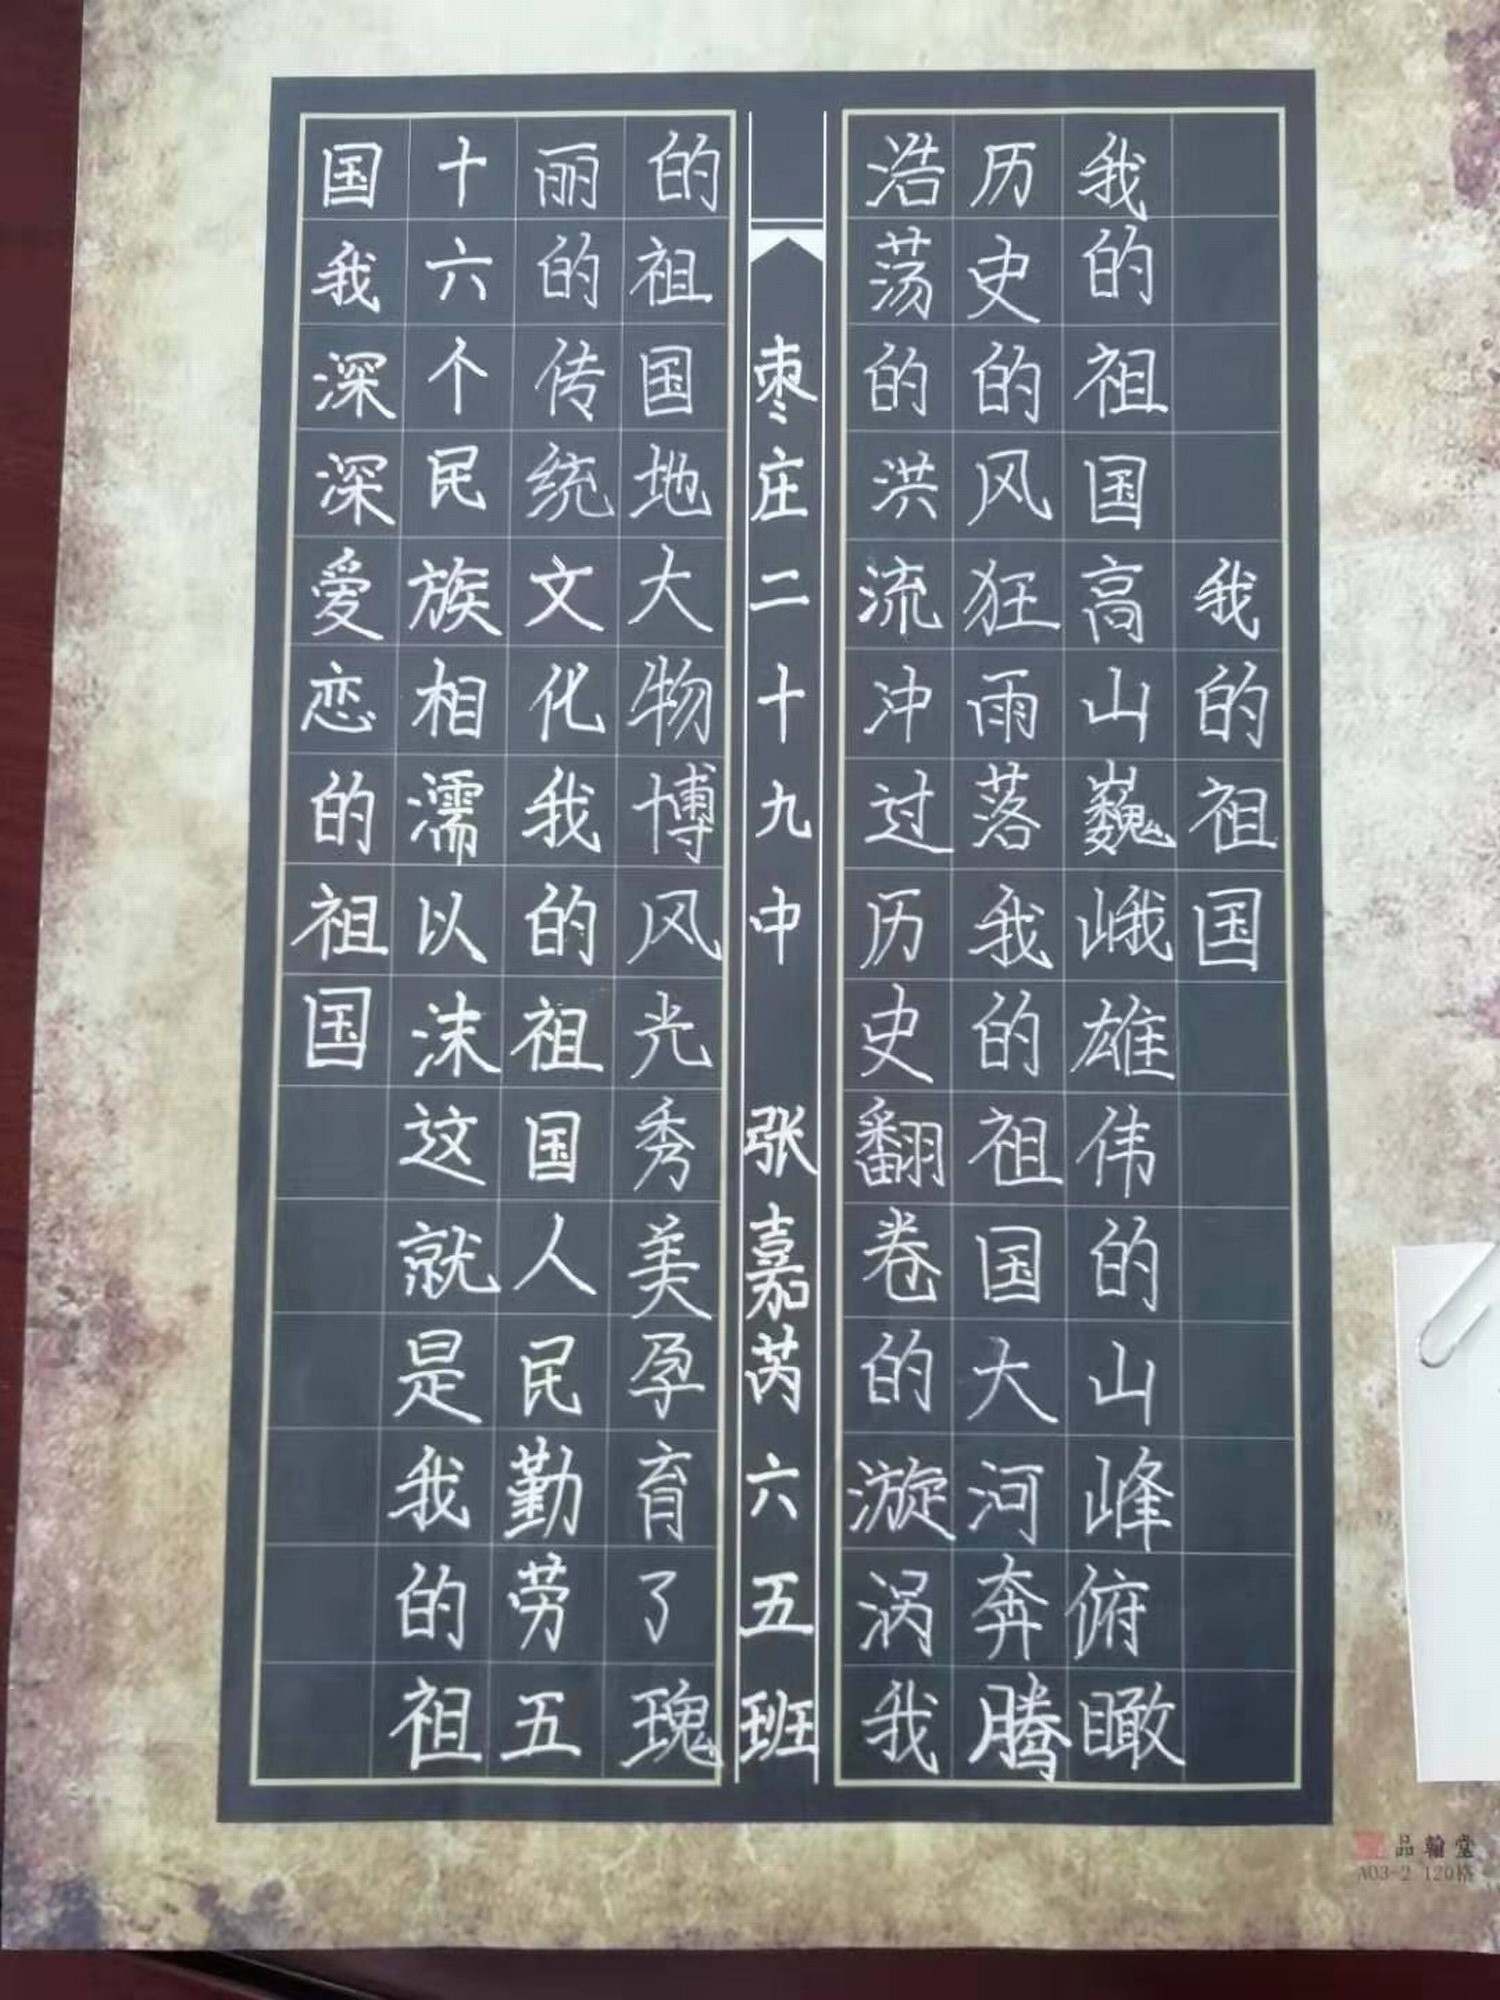 我的祖国
我的祖国高山巍峨雄伟的山峰俯瞰
历史的风狂雨落我的祖国大河奔腾
浩荡的洪流冲过历史翻卷的漩涡我
枣庄二十九中 张嘉芮六五班
的祖国地大物博风光秀美孕育了瑰
丽的传统文化我的祖国人民勤劳五
十六个民族相濡以沫这就是我的祖
国我深深爱恋的祖国
品翰堂
A03-2 120格